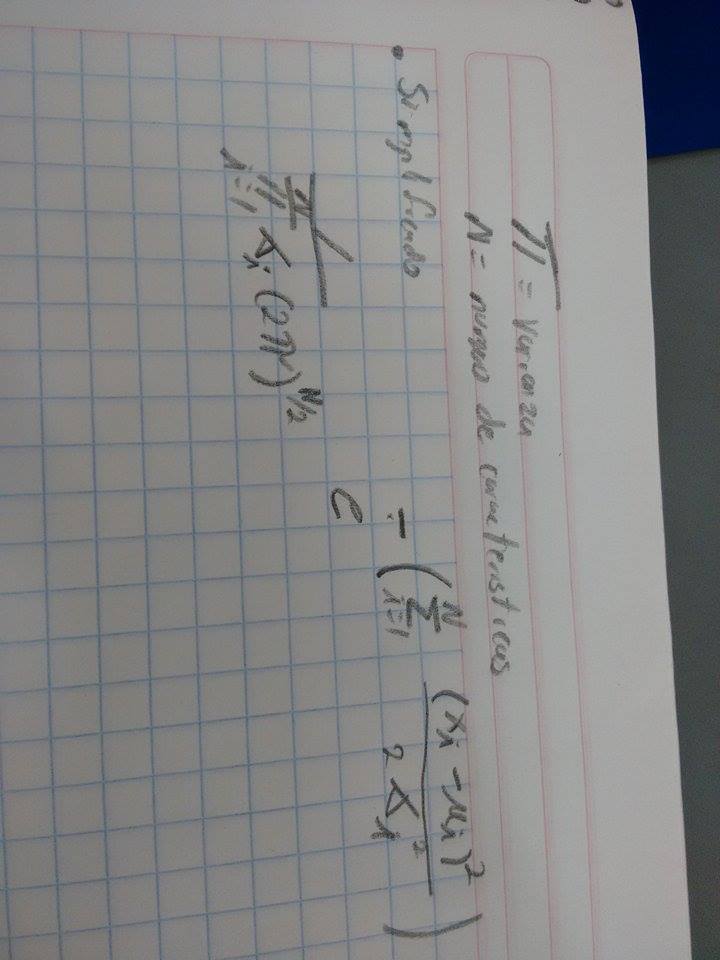 π = Varianza
N = numero de caracteristicas
• Simplificando
1 / ∏ᵢ₌₁ᴺ σᵢ (2π)^(N/2) e^−(∑ᵢ₌₁ᴺ (xᵢ − μᵢ)² / 2σᵢ²)